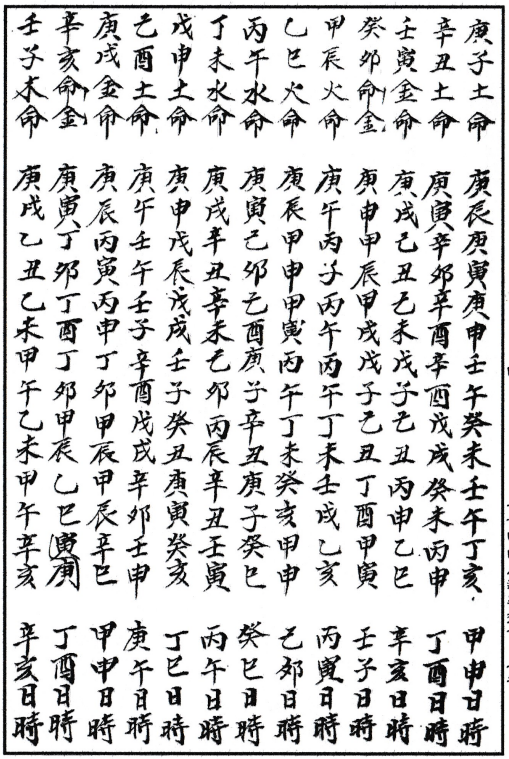 庚子土命 庚辰庚寅庚申壬午癸未壬午丁亥 甲申日時
辛丑土命 庚寅辛卯辛酉辛酉戊戌癸未丙申 丁酉日時
壬寅金命 庚戌己丑己未戊子己丑丙申乙巳 辛亥日時
癸卯命金 庚申甲辰甲戌戊子己丑丁酉甲寅 壬子日時
甲辰火命 庚午丙子丙午丙午丁未壬戌乙亥 丙寅日時
乙巳火命 庚辰甲申甲寅丙午丁未癸亥甲申 乙卯日時
丙午水命 庚寅己卯乙酉庚子辛丑庚子癸巳 癸巳日時
丁未水命 庚戌辛丑辛未乙卯丙辰辛丑壬寅 丙午日時
戊申土命 庚申戊辰戊戌壬子癸丑庚寅癸亥 丁巳日時
己酉土命 庚午壬午壬子辛酉戊戌辛卯壬申 庚午日時
庚戌金命 庚辰丙寅丙申丁卯甲辰甲辰辛巳 甲申日時
辛亥命金 庚寅丁卯丁酉丁卯甲辰乙巳寅庚 丁酉日時
壬子未命 庚戌乙丑乙未甲午乙未甲午辛亥 辛亥日時